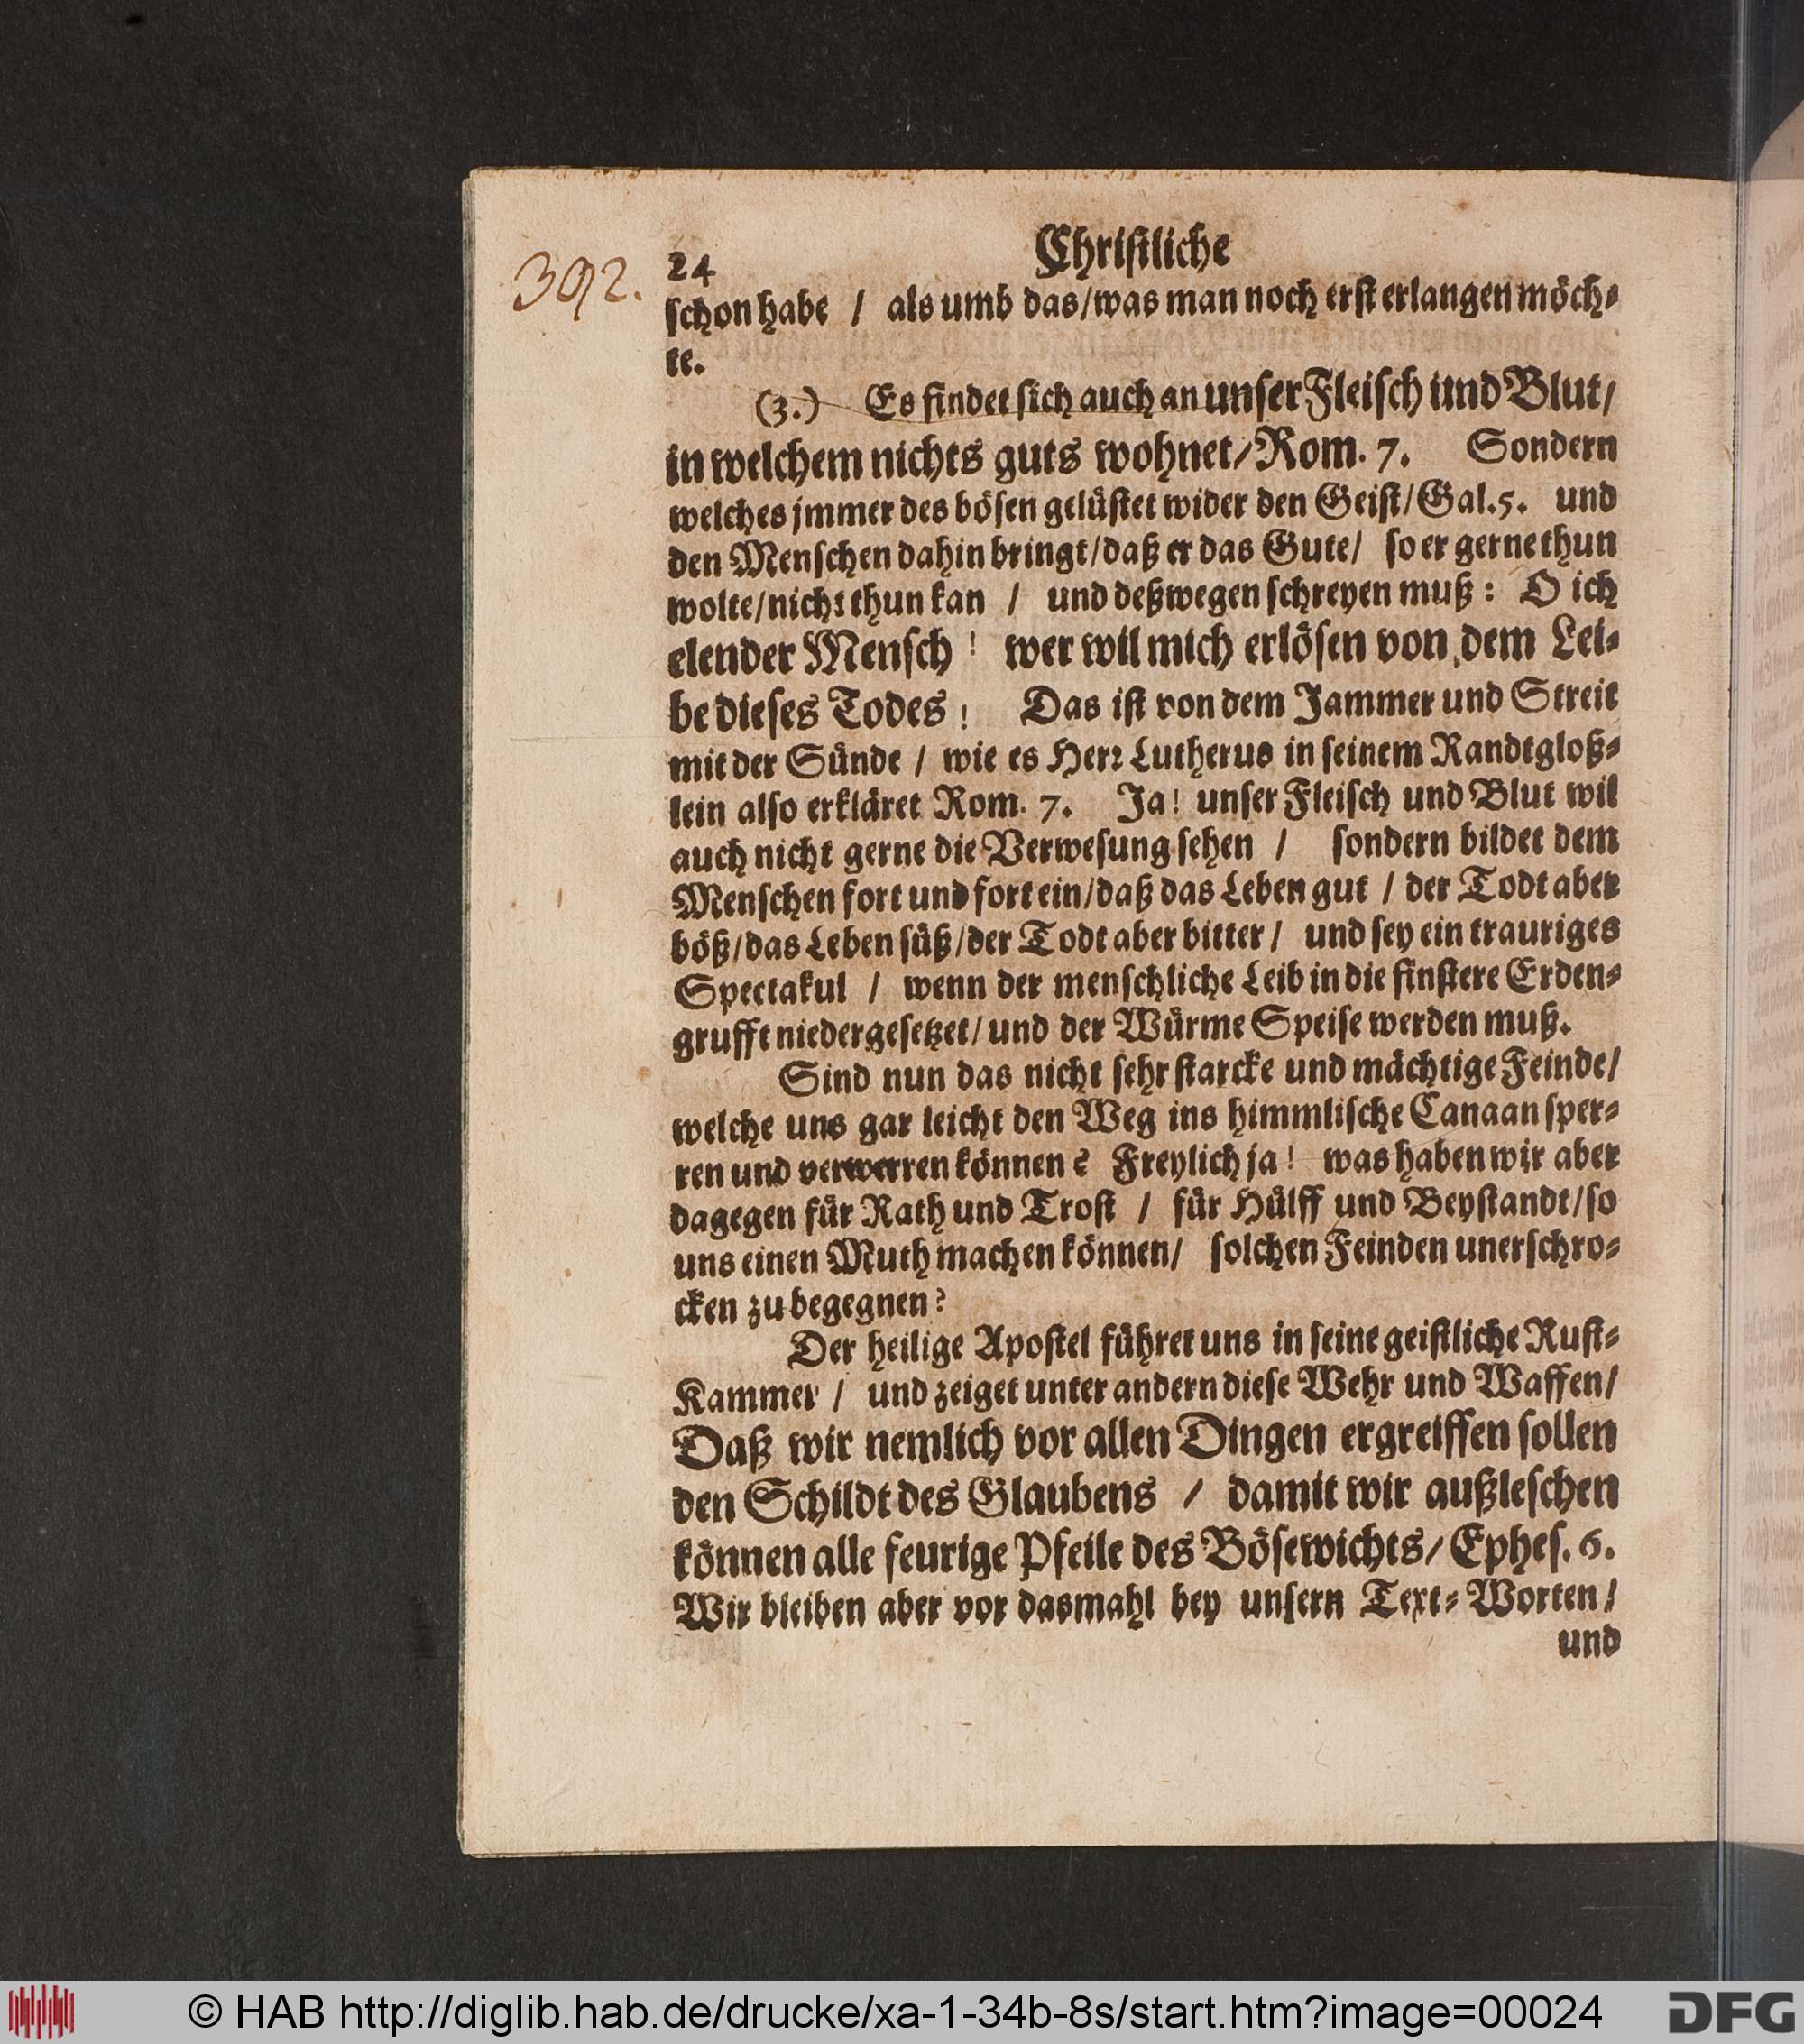 392.
24 Christliche
schon habe / als umb das/was man noch erst erlangen möch⸗
te.
(3.) Es findet sich auch an unser Fleisch und Blut/
in welchem nichts guts wohnet/Rom. 7. Sondern
welches jmmer des bösen gelüstet wider den Geist/Gal.5. und
den Menschen dahin bringt/daß er das Gute/ so er gerne thun
wolte/nicht thun kan / und deßwegen schreyen muß: O ich
elender Mensch! wer wil mich erlösen von dem Lei⸗
be dieses Todes! Das ist von dem Jammer und Streit
mit der Sünde / wie es Herr Lutherus in seinem Randtgloß⸗
lein also erkläret Rom. 7. Ja! unser Fleisch und Blut wil
auch nicht gerne die Verwesung sehen / sondern bildet dem
Menschen fort und fort ein/daß das Leben gut / der Todt aber
böß/das Leben süß/der Todt aber bitter/ und sey ein trauriges
Spectakul / wenn der menschliche Leib in die finstere Erden⸗
grufft niedergesetzet/und der Würme Speise werden muß.
Sind nun das nicht sehr starcke und mächtige Feinde/
welche uns gar leicht den Weg ins himmlische Canaan sper⸗
ren und verwerren können? Freylich ja! was haben wir aber
dagegen für Rath und Trost / für Hülff und Beystandt/so
uns einen Muth machen können/ solchen Feinden unerschro⸗
cken zu begegnen?
Der heilige Apostel führet uns in seine geistliche Rust⸗
Kammer / und zeiget unter andern diese Wehr und Waffen/
Daß wir nemlich vor allen Dingen ergreiffen sollen
den Schildt des Glaubens / damit wir außleschen
können alle feurige Pfeile des Bösewichts/Ephes. 6.
Wir bleiben aber vor dasmahl bey unsern Text⸗Worten/
und
© HAB http://diglib.hab.de/drucke/xa-1-34b-8s/start.htm?image=00024
DFG